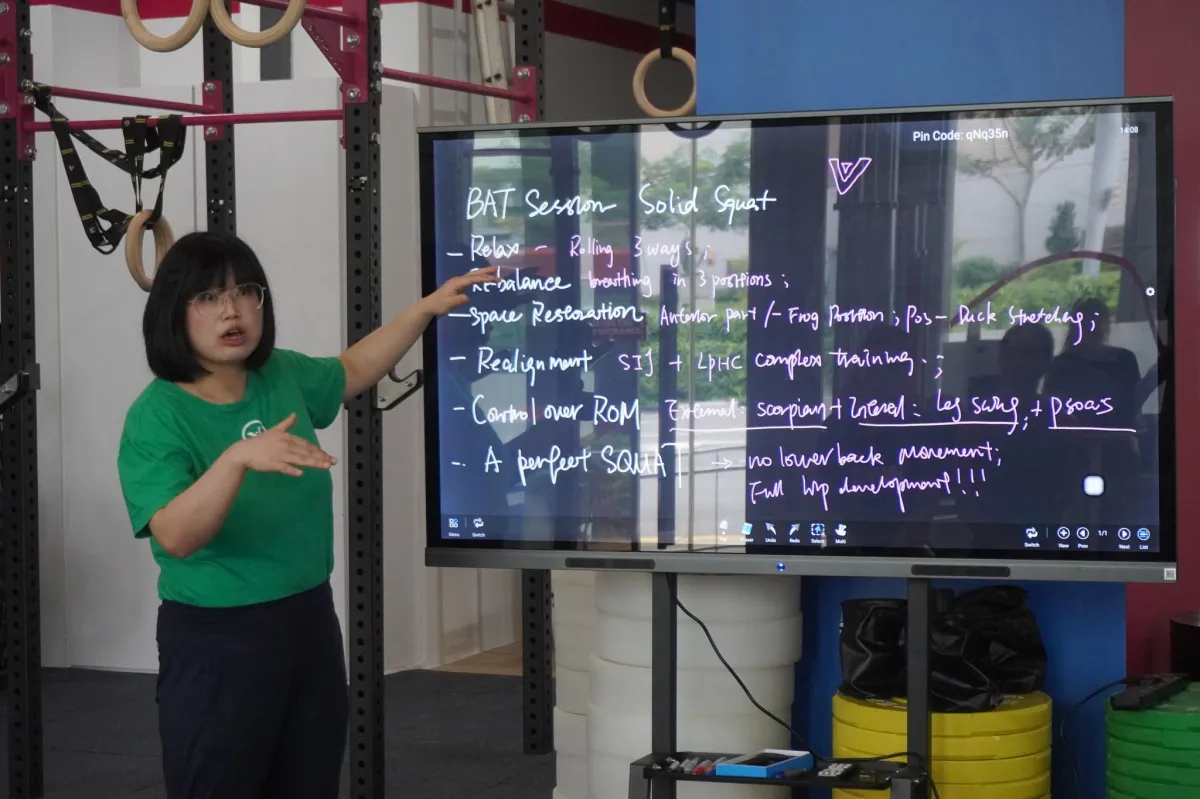 Pin Code: qNq35n
14:08
BAT Session Solid Squat
- Relax - Rolling 3 ways ;
- Rebalance breathing in 3 positions ;
- Space Restoration Anterior part /- Frog Position ; Pos - Duck Stretching ;
- Realignment SIJ + LPHC complex training . ;
- Control over ROM External : scorpian + Internal : leg swing ; + psoas
-. A perfect SQUAT → no lower back movement ;
Full hip development !!!
Menu Switch Undo Redo Select Multi Switch New Prev 1/1 Next List